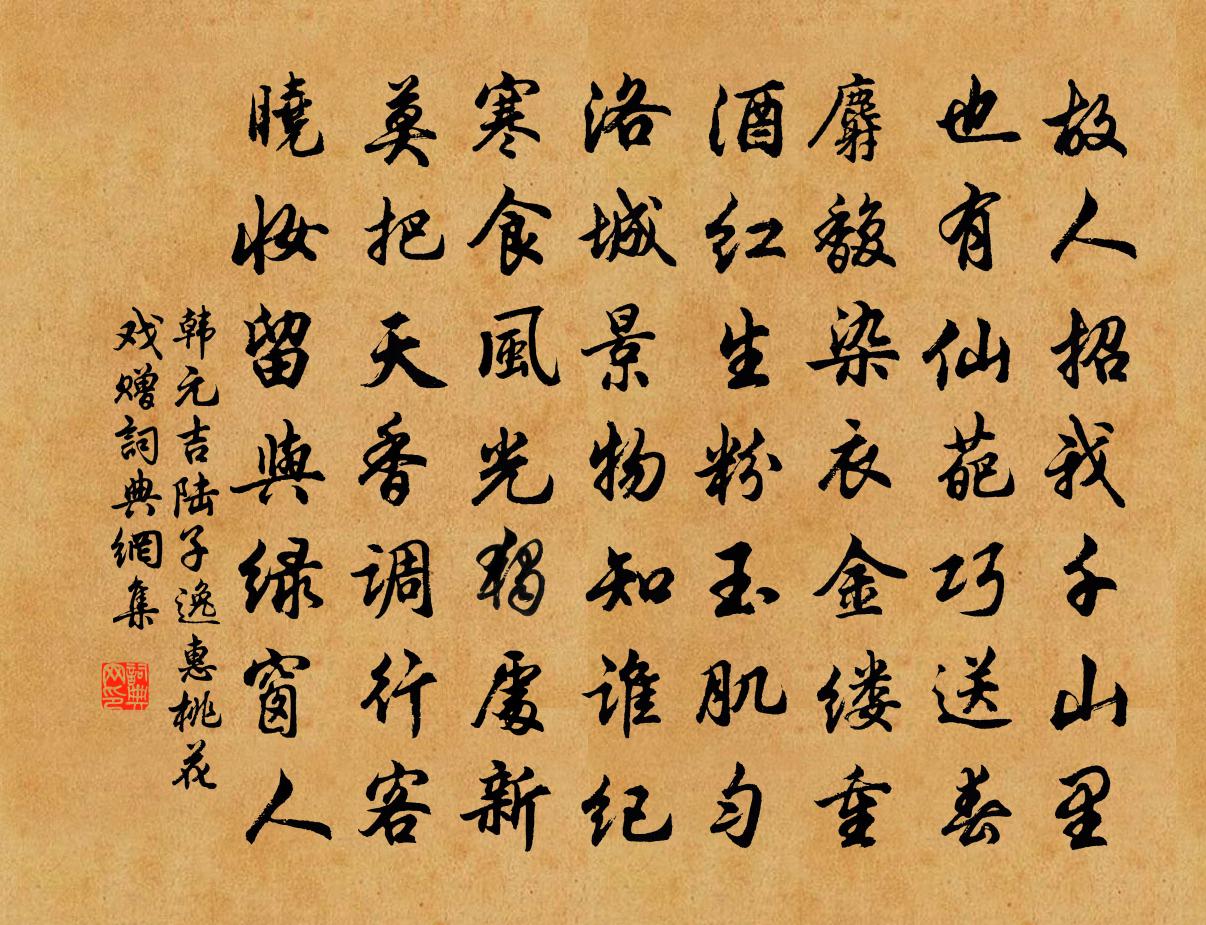 故人招我千山里
也有仙葩巧送春
麝馥染衣金缕重
酒红生粉玉肌匀
洛城景物知谁纪
寒食風光獨處新
莫把天香調行客
曉妆留與绿窗人
韩元吉陆子逸惠桃花
戏赠詞典網集
詞典
网印